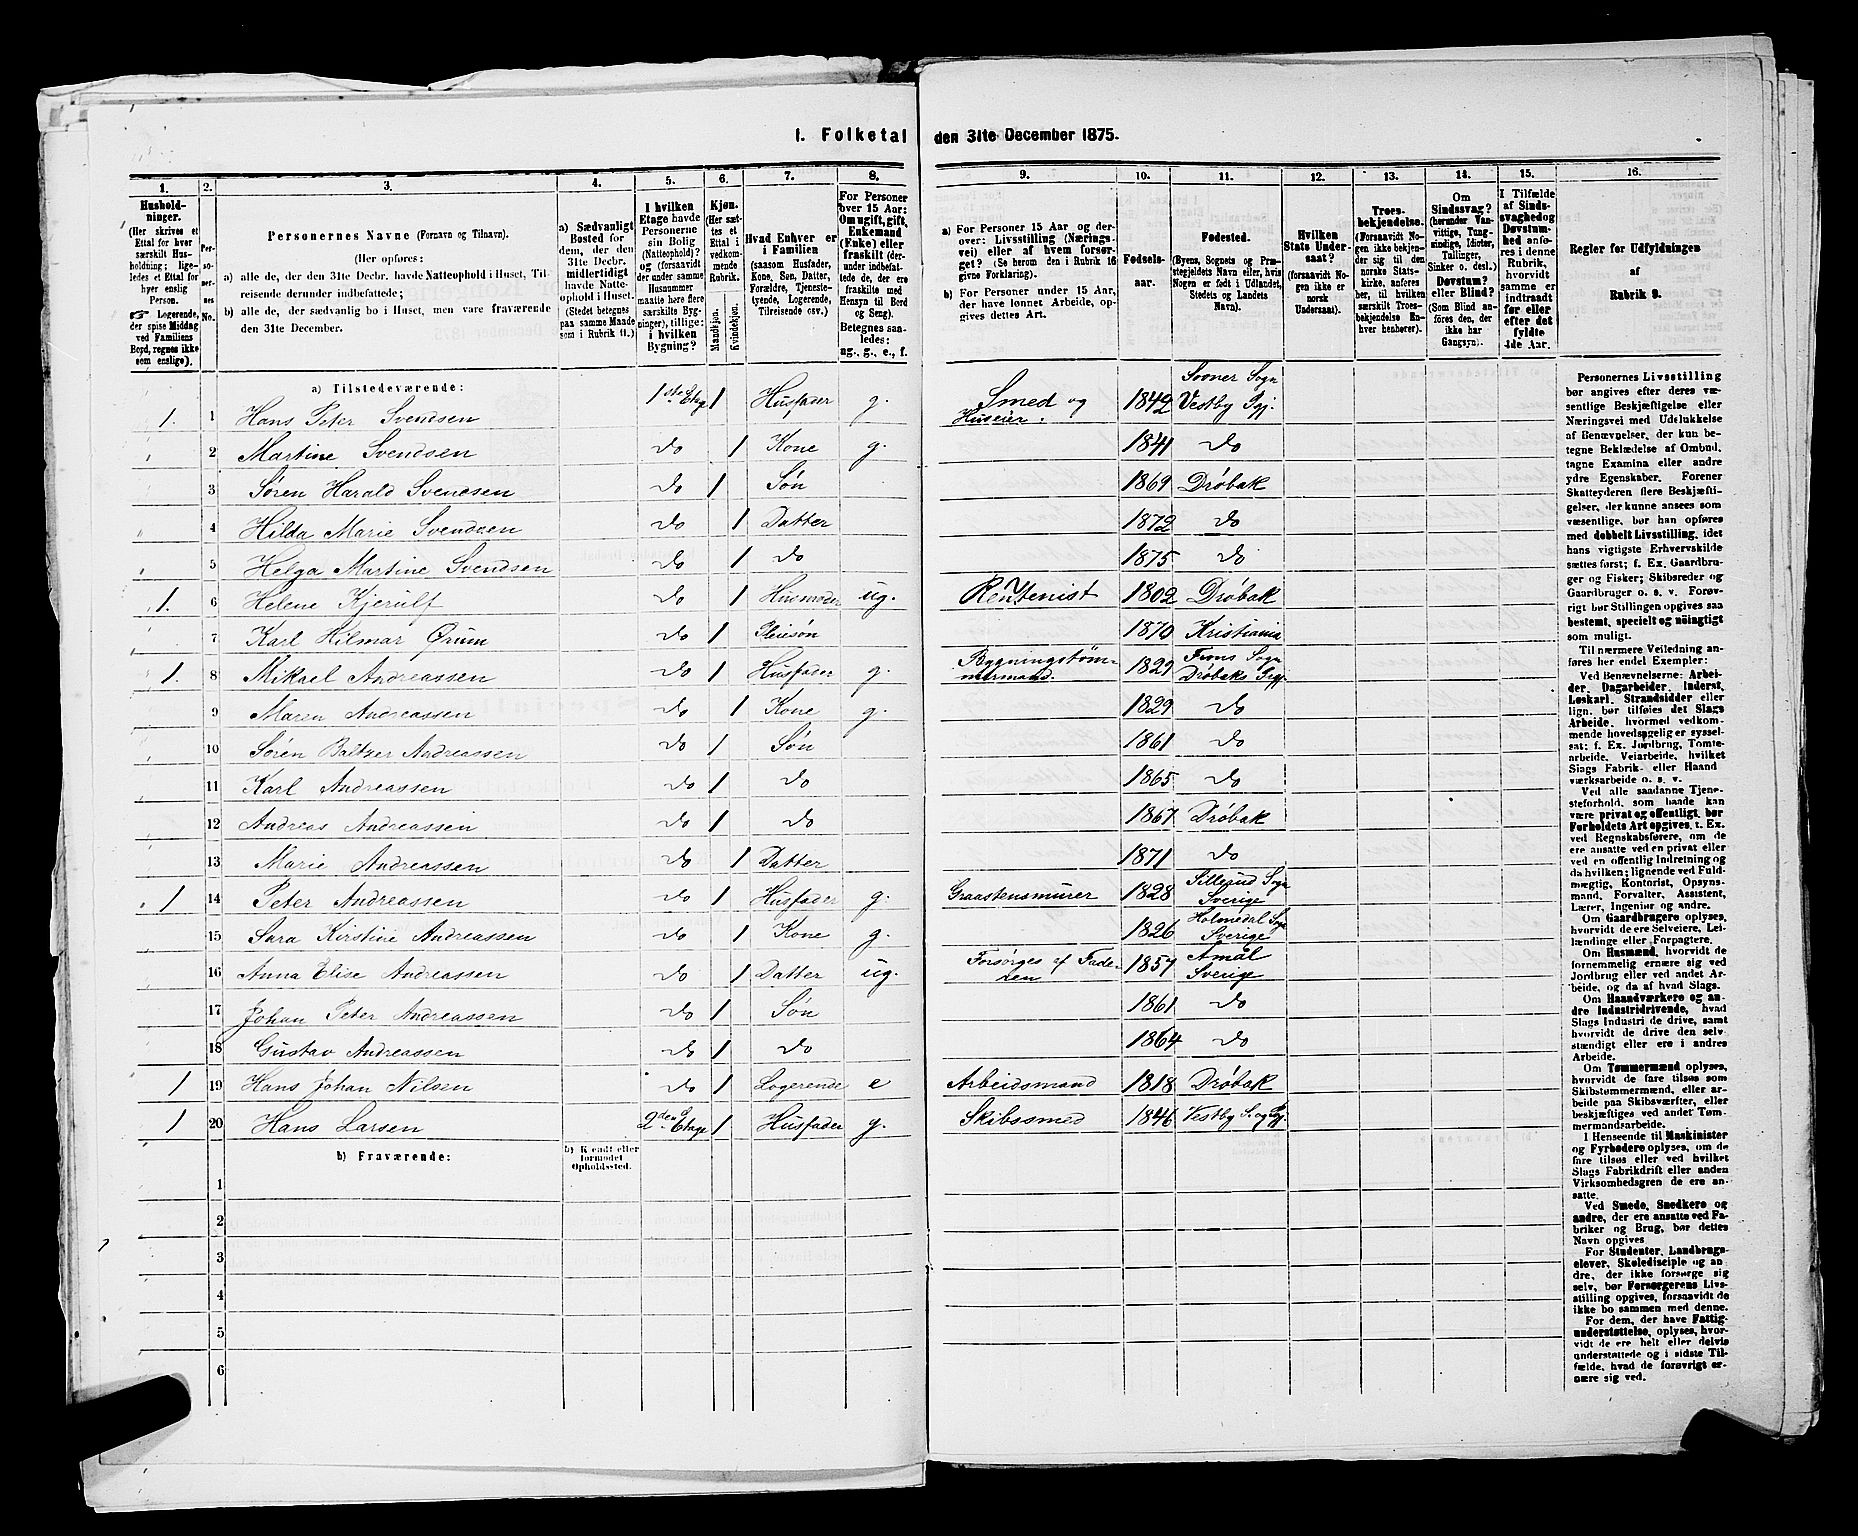 1. Folketal den 31te December 1875.
1. 2. 3. 4. 5. 6. 7. 8. 9. 10. 11. 12. 13. 14. 15. 16.
Husholdninger.
(Her skrives et
Ettal for hver
særskilt Husholdning;
ligeledes et Ettal for
hver enslig
Person.
Logerende,
der spise Middag
ved Familiens
Bord, regnes ikke
som enslige).
Personernes No.
Personernes Navne (Fornavn og Tilnavn).
(Her opføres:
a) alle de, der den 31te Decbr. havde Natteophold i Huset, Tilreisende derunder indbefattede;
b) alle de, der sædvanlig bo i Huset, men vare fraværende den 31te December.
a) Sædvanligt
Bosted for
dem, der den
31te Decbr.
midlertidigt
havde Natteophold
i Huset.
(Stedet betegnes
paa samme Maade
som i Rubrik 11.)
I hvilken
Etage havde
Personerne
sin Bolig
(Natteophold)?
og (forsaavidt
der under samme
Husnummer
maatte høre flere
særskilte Bygninger),
tillige:
i hvilken
Bygning?
Kjøn.
(Her sættes
et Ettal i
vedkommende
Rubrik.
Mandkjøn.
Kvindekjøn.
Hvad Enhver er
i Familien
(saasom Husfader,
Kone, Søn, Datter,
Forældre, Tjenestetyende,
Logerende,
Tilreisende osv.)
For Personer
over 15 Aar:
Om ugift, gift,
Enkemand
(Enke) eller
fraskilt (derunder
indbefattede
de, der ere
fraskilte med
Hensyn til Bord
og Seng).
Betegnes saaledes:
ug., g., e., f.
a) For Personer 15 Aar og derover:
Livsstilling (Næringsvei)
eller af hvem forsørget?
(Se herom den i Rubrik 16
givne Forklaring).
b) For Personer under 15 Aar,
der have lønnet Arbeide, opgives
dettes Art.
Fødselsaar.
Fødested.
(Byens, Sognets og Præstegjeldets
Navn eller, hvis
Nogen er født i Udlandet,
Stedets og Landets
Navn).
Hvilken
Stats Undersaat?
(forsaavidt Nogen
ikke er
norsk
Undersaat).
Troesbekjendelse.
(Forsaavidt Nogen
ikke bekjender
sig til den
norske Statskirke,
anføres
her, til hvilken
særskilt Troesbekjendelse
Enhver
henhører).
Om
Sindssvag?
(herunder Vanvittige,
Tungsindige,
Idioter,
Tullinger,
Sinker o. desl.)
Døvstum?
eller Blind?
(Som Blind anføres
den, der
ikke har
Gangsyn).
I Tilfælde
af Sindssvaghed
og
Døvstumhed
anføres
i denne
Rubrik,
hvorvidt
samme er
indtraadt
før eller
efter det
fyldte
4de Aar.
Regler for Udfyldningen
af
Rubrik 9.
a) Tilstedeværende:
1. 1 Hans Peter Svendsen 1ste Etage 1 Husfader g. Smed og Huseier. 1842 Sooner Sogn Vestby Pgj.
2 Martine Svendsen do 1 Kone g. 1841 do
3 Søren Harald Svendsen do 1 Søn 1869 Drøbak
4 Hilda Marie Svendsen do 1 Datter 1872 do
5 Helga Martine Svendsen do 1 do 1875 do
1. 6 Helene Kjerulf do 1 Husmoder ug. Rentenist 1802 Drøbak
7 Karl Hilmar Ørum do 1 Pleiesøn 1870 Kristiania
1. 8 Mikael Andreassen do 1 Husfader g. Bygningstømmermand. 1829 Frons Sogn Drøbaks Pgj.
9 Maren Andreassen do 1 Kone g. 1829 do
10 Søren Baltzer Andreassen do 1 Søn 1861 do
11 Karl Andreassen do 1 do 1865 do
12 Andreas Andreassen do 1 do 1867 Drøbak
13 Marie Andreassen do 1 Datter 1871 do
1 14 Peter Andreassen do 1 Husfader g. Graastensmurer 1828 Sillerud Sogn Sverige
15 Sara Kirstine Andreassen do 1 Kone g. 1826 Holmedal Sogn Sverige
16 Anna Elise Andreassen do 1 Datter ug. Forsørges af Faderen 1857 Amål Sverige
17 Johan Peter Andreassen do 1 Søn 1861 do
18 Gustav Andreassen do 1 do 1864 do
1 19 Hans Johan Nilsen do 1 Logerende e Arbeidsmand 1818 Drøbak
1 20 Hans Larsen 2den Etage 1 Husfader g. Skibssmed 1846 Vestby S. og Pgj.
b) Fraværende:
b) Kjendt eller
formodet
Opholdssted.
1
2
3
4
5
6
Personernes Livsstilling
bør angives efter deres væsentlige
Beskjæftigelse eller
Næringsvei med Udelukkelse
af Benævnelser, der kun betegne
Beklædelse af Ombud,
tagne Examina eller andre
ydre Egenskaber. Forener
Skatteyderen flere Beskjæftigelser,
der kunne ansees som
væsentlige, bør han opføres
med dobbelt Livsstilling, idet
hans vigtigste Erhvervskilde
sættes først; f. Ex. Gaardbruger
og Fisker; Skibsreder og
Gaardbruger o. s. v. Forøvrigt
bør Stillingen opgives saa
bestemt, specielt og nöiagtigt
som muligt.
Til nærmere Veiledning anføres
her endel Exempler:
Ved Benævnelserne: Arbeider,
Dagarbeider, Inderst,
Løskarl, Strandsidder eller
lign. bør tilføies det Slags
Arbeide, hvormed vedkommende
hovedsagelig er sysselsat;
f. Ex. Jordbrug, Tomtearbeide,
Veiarbeide, hvilket
Slags Fabrik- eller Haandværksarbeide
o. s. v.
Ved alle saadanne Tjenesteforhold,
som baade kan
være privat og offentligt, bør
Forholdets Art opgives, t. Ex.
ved Regnskabsførere, om de
ere ansatte ved en privat eller
ved en offentlig Indretning og
da hvilken; lignende ved Fuldmægtig,
Kontorist, Opsynsmand,
Forvalter, Assistent,
Lærer, Ingeniør og andre.
Om Gaardbrugere oplyses,
hvorvidt de ere Selveiere, Leilændinge
eller Forpagtere.
Om Husmænd, hvorvidt de
fornemmelig ernære sig ved
Jordbrug eller ved andet Arbeide,
og da af hvad Slags.
Om Haandværkere og andre
Industridrivende, hvad
Slags Industri de drive, samt
hvorvidt de drive den selvstændigt
eller ere i andres
Arbeide.
Om Tømmermænd oplyses,
hvorvidt de fare tilsøs som
Skibstømmermænd, eller arbeide
paa Skibsværfter, eller
beskjæftiges ved andet Tømmermandsarbeide.
I Henseende til Maskinister
og Fyrbødere oplyses, om de
fare tilsøs eller ved hvilket
Slags Fabrikdrift eller anden
Virksomhedsgren de ere ansatte.
Ved Smede, Snedkere og
andre, der ere ansatte ved Fabriker
og Brug, bør dettes
Navn opgives
For Studenter, Landbrugselever,
Skoledisciple og andre,
der ikke forsørge sig
selv, bør Forsørgerens Livsstilling
opgives, forsaavidt de
ikke bo sammen med denne.
For dem, der have Fattigunderstøttelse,
oplyses, hvorvidt
de ere helt eller delvis
understøttede og i sidste Tilfælde,
hvad de forøvrigt ernære
sig ved.